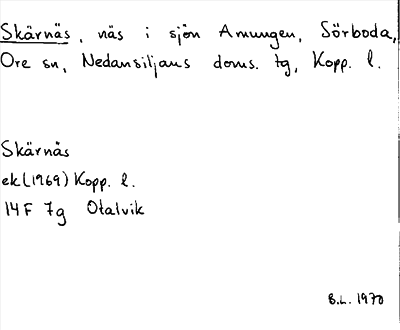 Skärnäs, näs i sjön Amungen, Sörboda,
Ore sn, Nedansiljans doms. tg, Kopp. l.
Skärnäs
ek (1969) Kopp. l.
14F 7g Otalvik
B.L. 1970